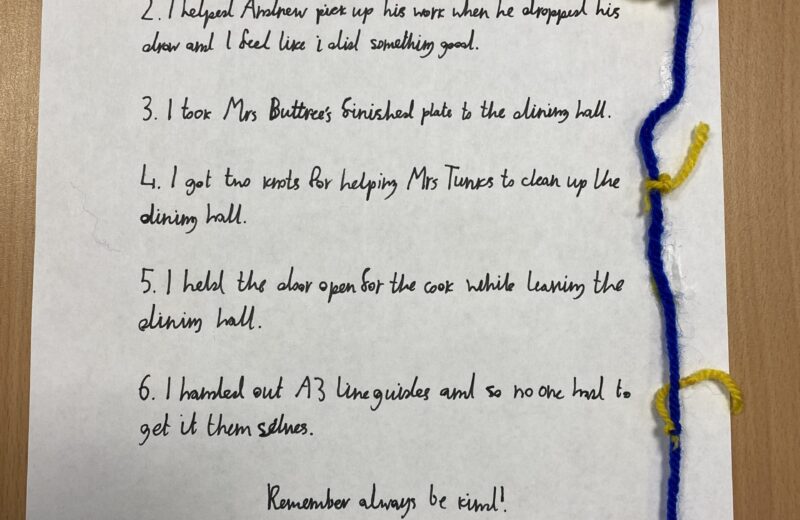 2. I helped Andrew pick up his work when he dropped his
draw and I feel like i did something good.
3. I took Mrs Buttree's finished plate to the dining hall.
4. I got two knots for helping Mrs Tunks to clean up the
dining hall.
5. I held the door open for the cook while leaving the
dining hall.
6. I handed out A3 line guides and so no one had to
get it them selves.
Remember always be kind!